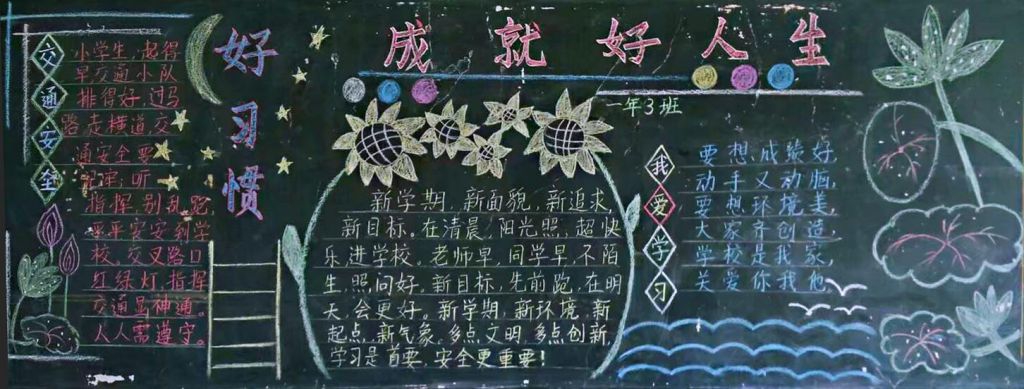 好习惯
成就好人生
一年3班
交通安全
小学生,起得
早交通小队
排得好,过马
路走横道,交
通安全要
牢记,听
指挥别乱跑,
平平安安到学
校。交叉路口
红绿灯,指挥
交通显神通。
人人需遵守。
新学期,新面貌,新追求,
新目标。在清晨,阳光照,超快
乐进学校。老师早,同学早,不陌
生,照问好。新目标,先前跑,在明
天,会更好。新学期,新环境,新
起点,新气象。多点文明,多点创新,
学习是首要,安全更重要!
我爱学习
要想成绩好,
动手又动脑,
要想环境美,
大家齐创造,
学校是我家,
关爱你我他